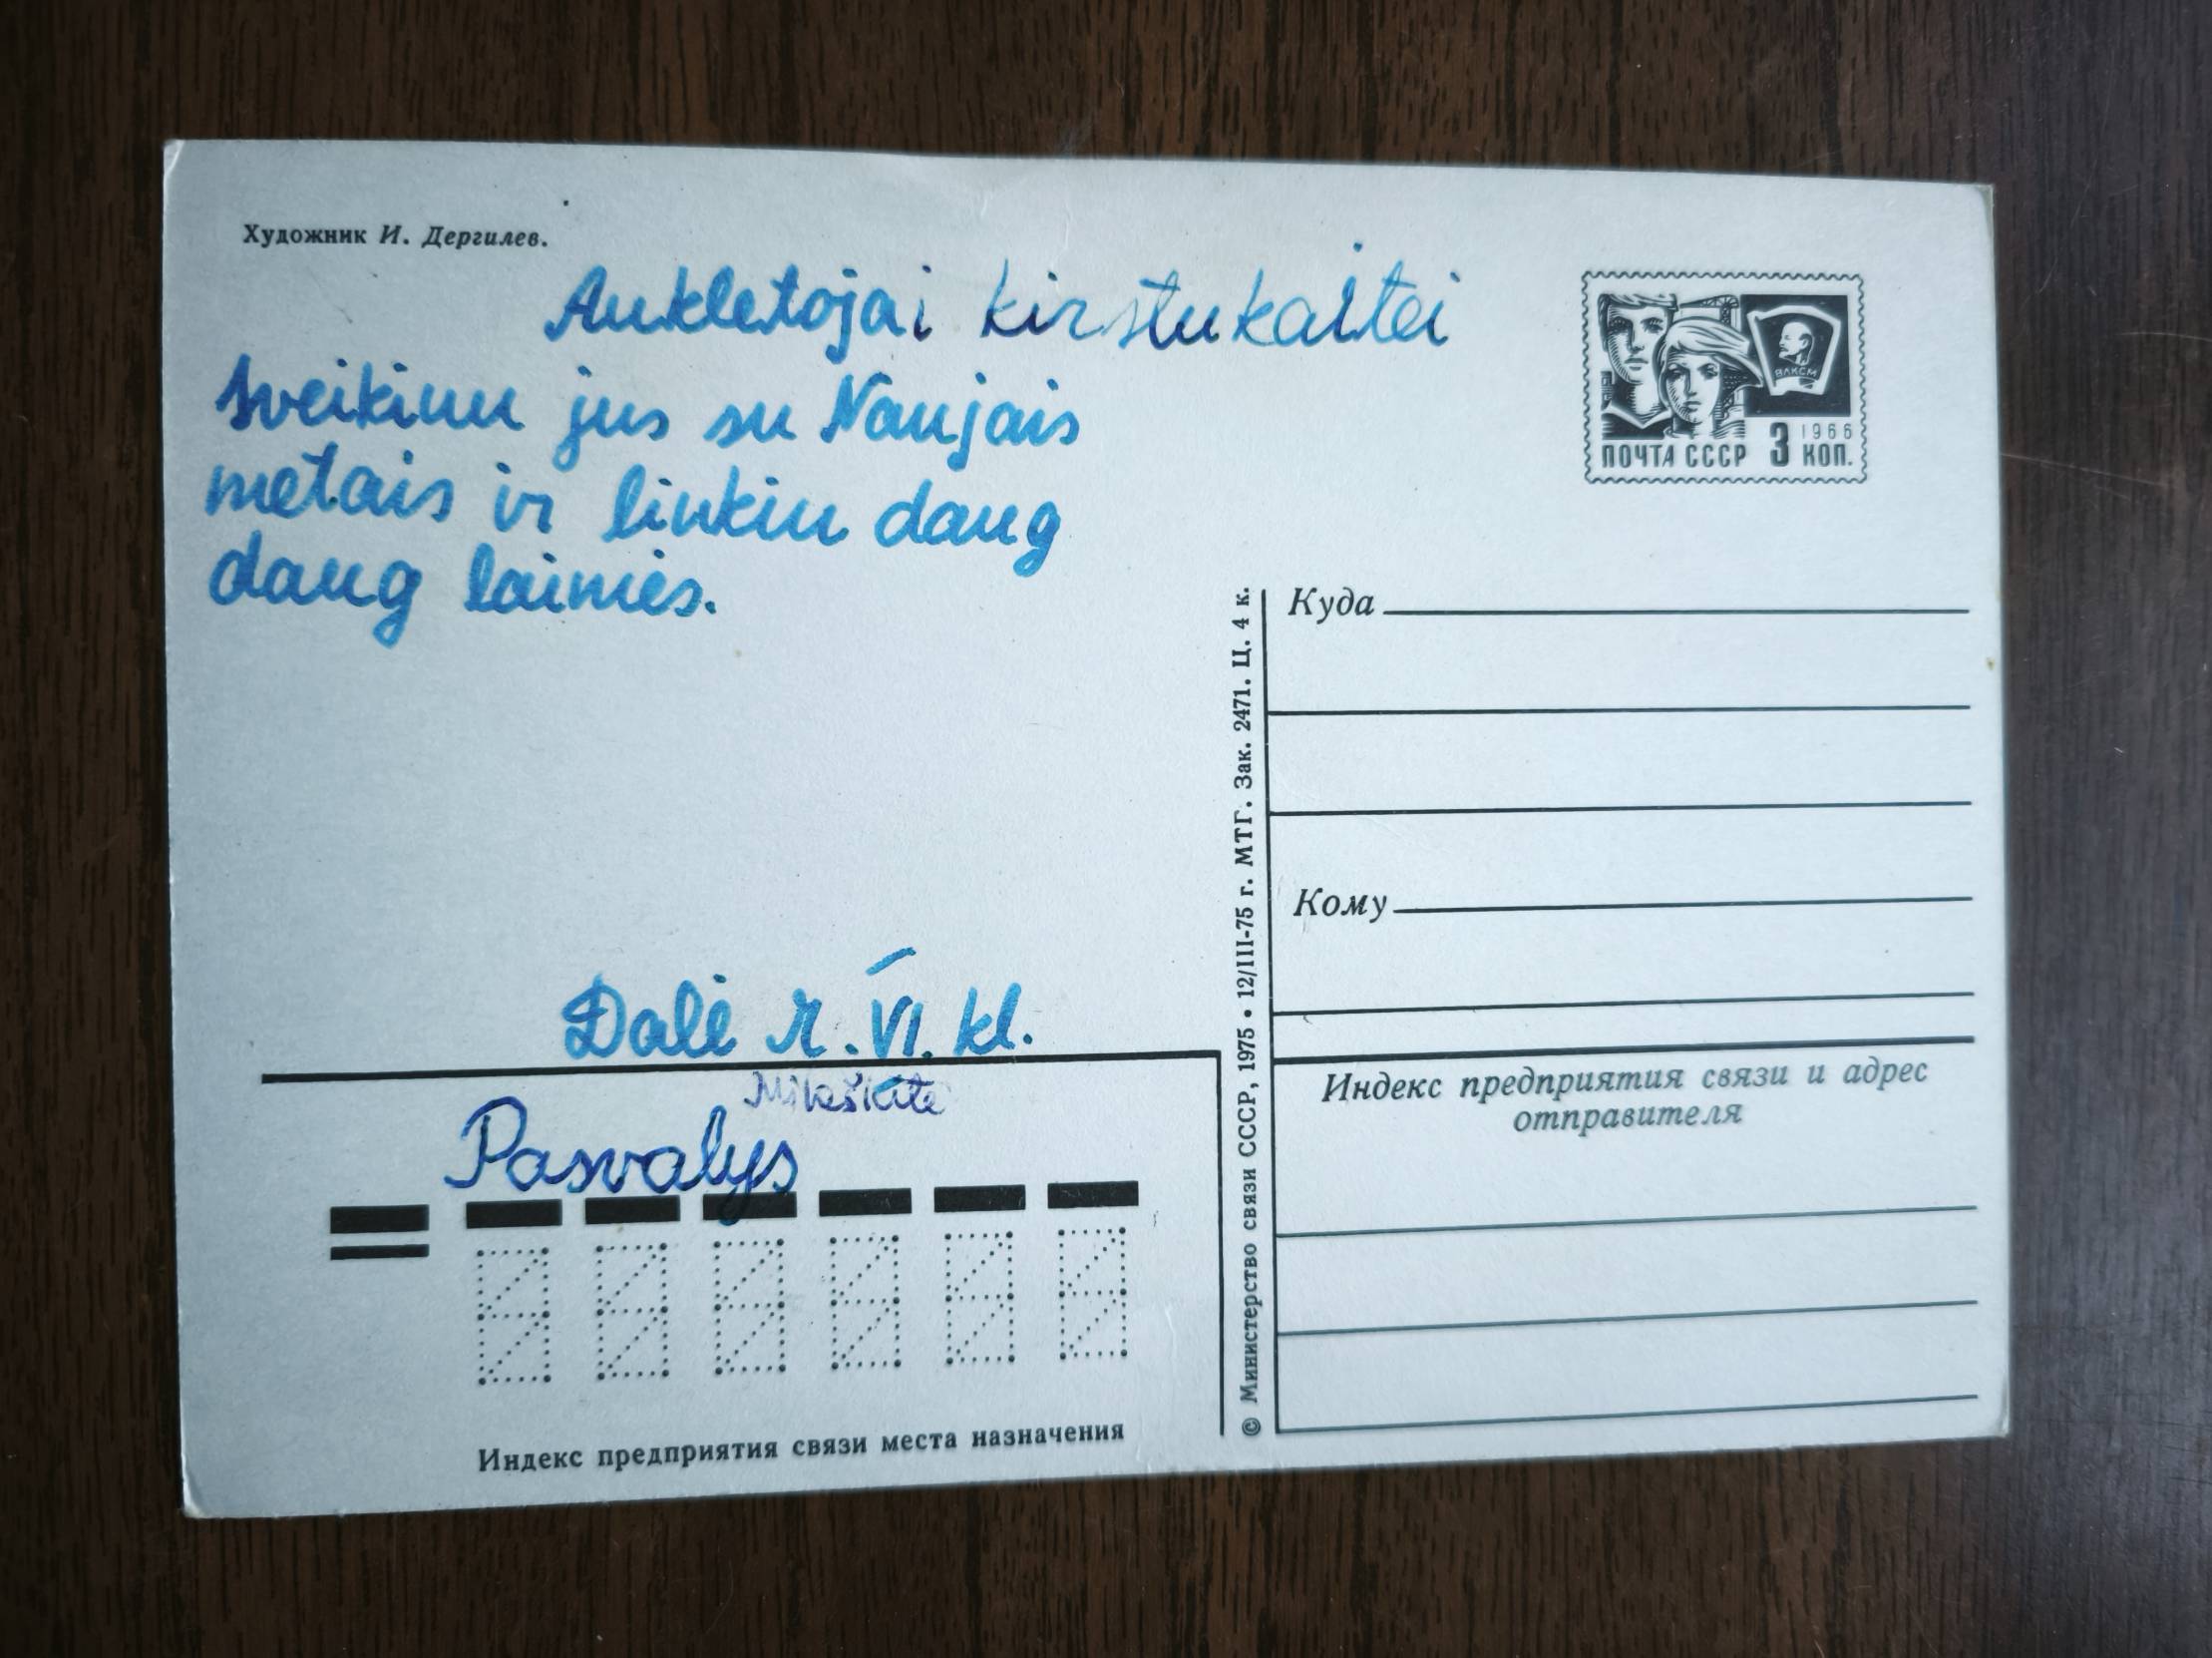 Художник И. Дергилев.
Aukletojai kirstukaitei
sveikinu jus su Naujais
metais ir linkiu daug
daug laimės.
Dalė R. VI. kl.
Pasvalys
Индекс предприятия связи места назначения
© Министерство связи СССР, 1975 • 12/III-75 г. МТГ. Зак. 2471. Ц. 4 к.
ВЛКСМ
1966
ПОЧТА СССР 3 КОП.
Куда
Кому
Индекс предприятия связи и адрес
отправителя